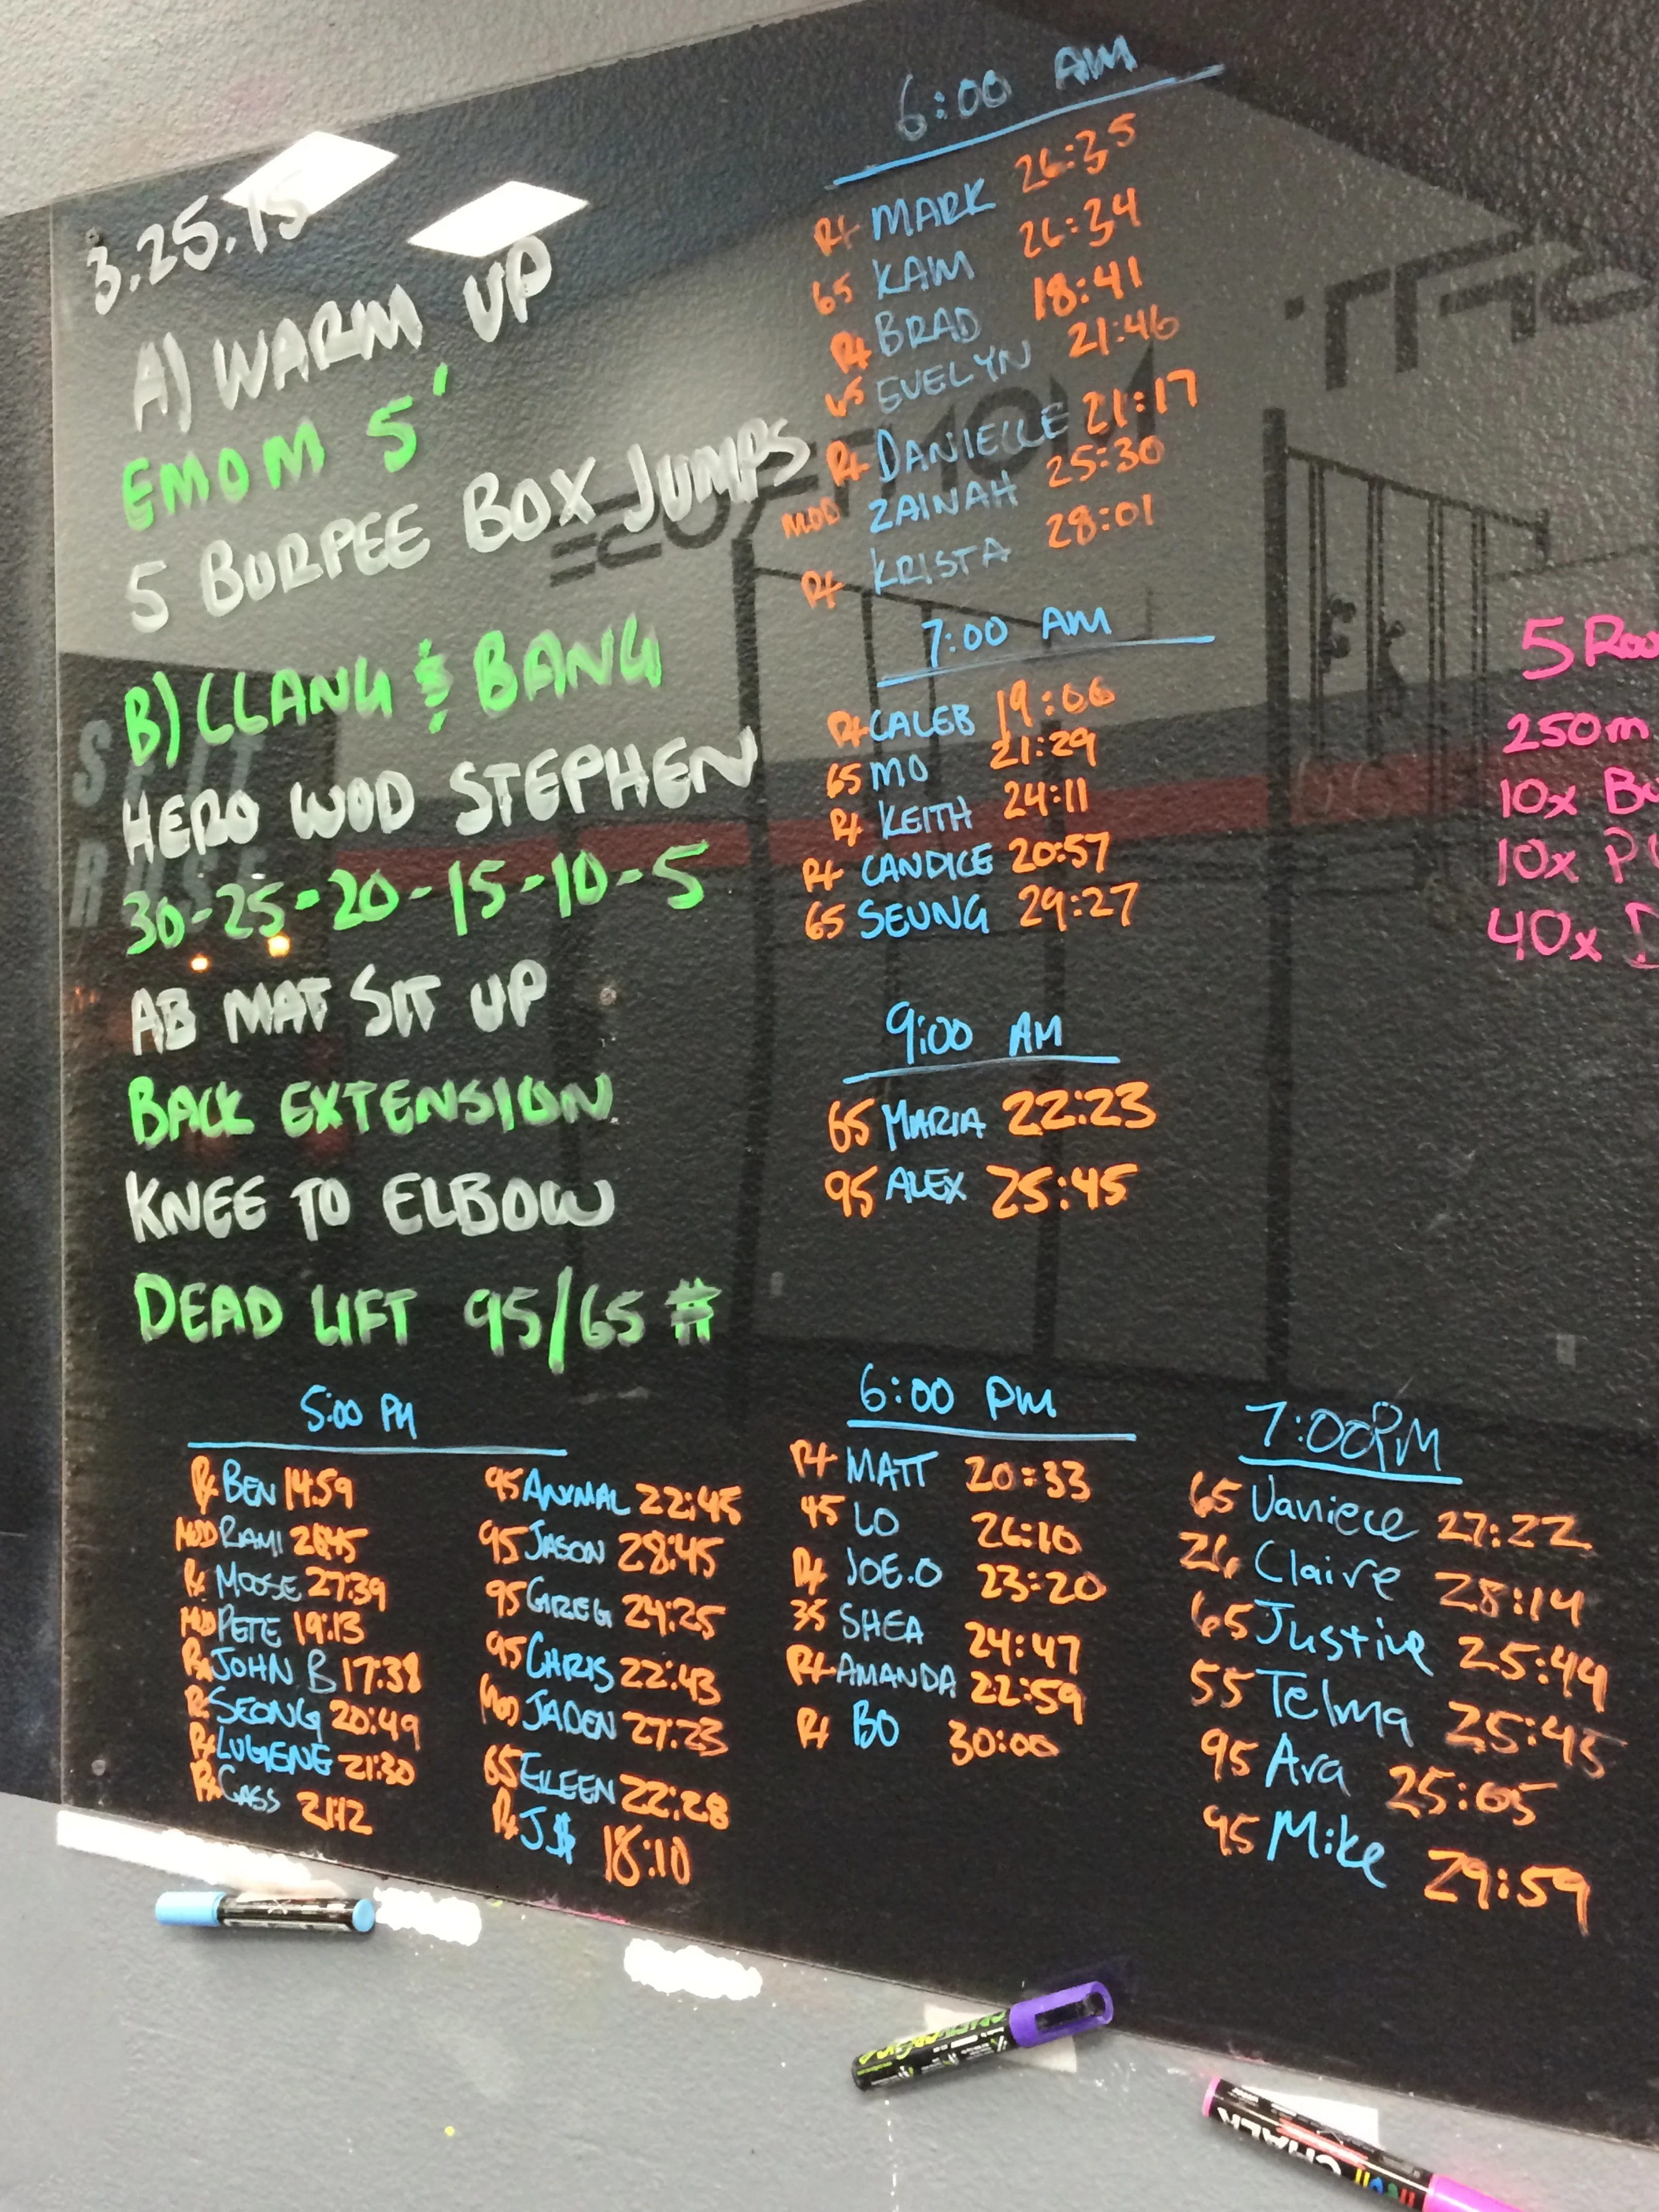 3.25.15
A) WARM UP
EMOM 5'
5 BURPEE BOX JUMPS
B) CLANG & BANG
HERO WOD STEPHEN
30-25-20-15-10-5
AB MAT SIT UP
BACK EXTENSION
KNEE TO ELBOW
DEAD LIFT 95/65 #
6:00 AM
RX MARK 26:35
65 KAM 26:34
RX BRAD 18:41
65 EVELYN 21:46
RX DANIELLE 21:17
MOD ZAINAH 25:30
RX KRISTA 28:01
7:00 AM
RX CALEB 19:06
65 MO 21:29
RX KEITH 24:11
RX CANDICE 20:57
65 SEUNG 29:27
9:00 AM
65 MARIA 22:23
95 ALEX 25:45
5:00 PM
RX BEN 14:59
MOD RAMI
RX MOOSE 27:39
MOD PETE 19:13
RX JOHN B 17:38
RX SEONG 20:49
RX LUGIENE 21:30
RX CASS 21:12
95 ANIMAL 22:45
95 JASON 28:45
95 GREG 24:25
95 CHRIS 22:43
MOD JADEN 27:23
65 EILEEN 22:28
RX J$ 18:10
6:00 PM
RX MATT 20:33
45 LO 26:10
RX JOE.O 23:20
35 SHEA 24:47
RX AMANDA 22:59
RX BO 30:00
7:00PM
65 Vaniece 27:22
26 Claire 28:14
65 Justine 25:44
55 Telma 25:45
95 Ara 25:05
95 Mike 29:59
5 Rou
250m
10x Bu
10x Pu
40x D
CHALK